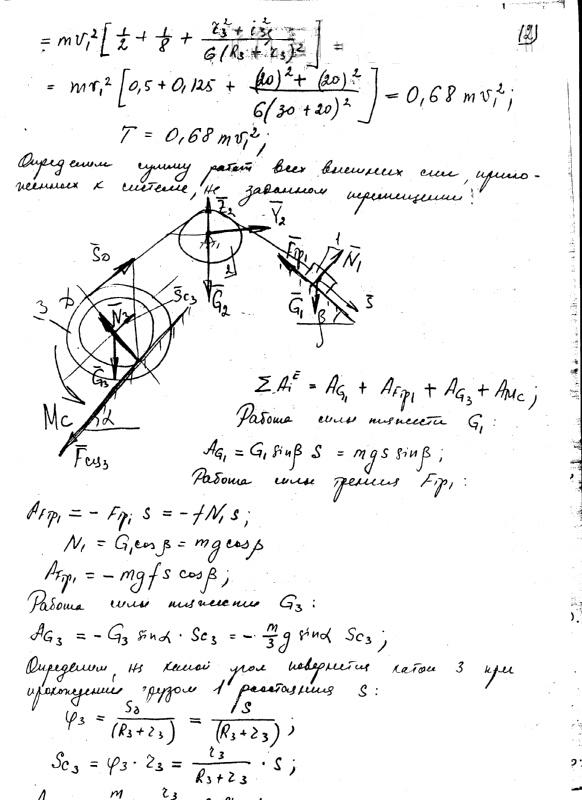 (2)
= mv₁² [ 1/2 + 1/8 + (r₃² + i₃²)/(6(R₃ + r₃)²) ] =
= mv₁² [ 0,5 + 0,125 + ((20)² + (20)²)/(6(30 + 20)²) ] = 0,68 mv₁²;
T = 0,68 mv₁²;
Определим сумму работ всех внешних сил, прило-
женных к системе, на заданном перемещении:
Z̄₂
Ȳ₂
S̄_D
F̄тр₁
1
N̄₁
2
Ḡ₂
Ḡ₁
β
S
3
D
N̄₃
S̄c₃
Ḡ₃
Mc
α
F̄сц₃
ΣAᵢᴱ = A_G₁ + A_Fтр₁ + A_G₃ + A_Mc;
Работа силы тяжести G₁:
A_G₁ = G₁ sinβ S = mgs sinβ;
Работа силы трения Fтр₁:
A_Fтр₁ = - Fтр₁ s = - fN₁ s;
N₁ = G₁ cosβ = mg cosβ
A_Fтр₁ = - mgfs cosβ;
Работа силы тяжести G₃:
A_G₃ = - G₃ sinα · Sc₃ = - m/3 g sinα Sc₃;
Определим, на какой угол повернется каток 3 при
прохождении грузом 1 расстояния S:
φ₃ = S_D/(R₃ + r₃) = S/(R₃ + r₃);
Sc₃ = φ₃ · r₃ = r₃/(R₃ + r₃) · S;